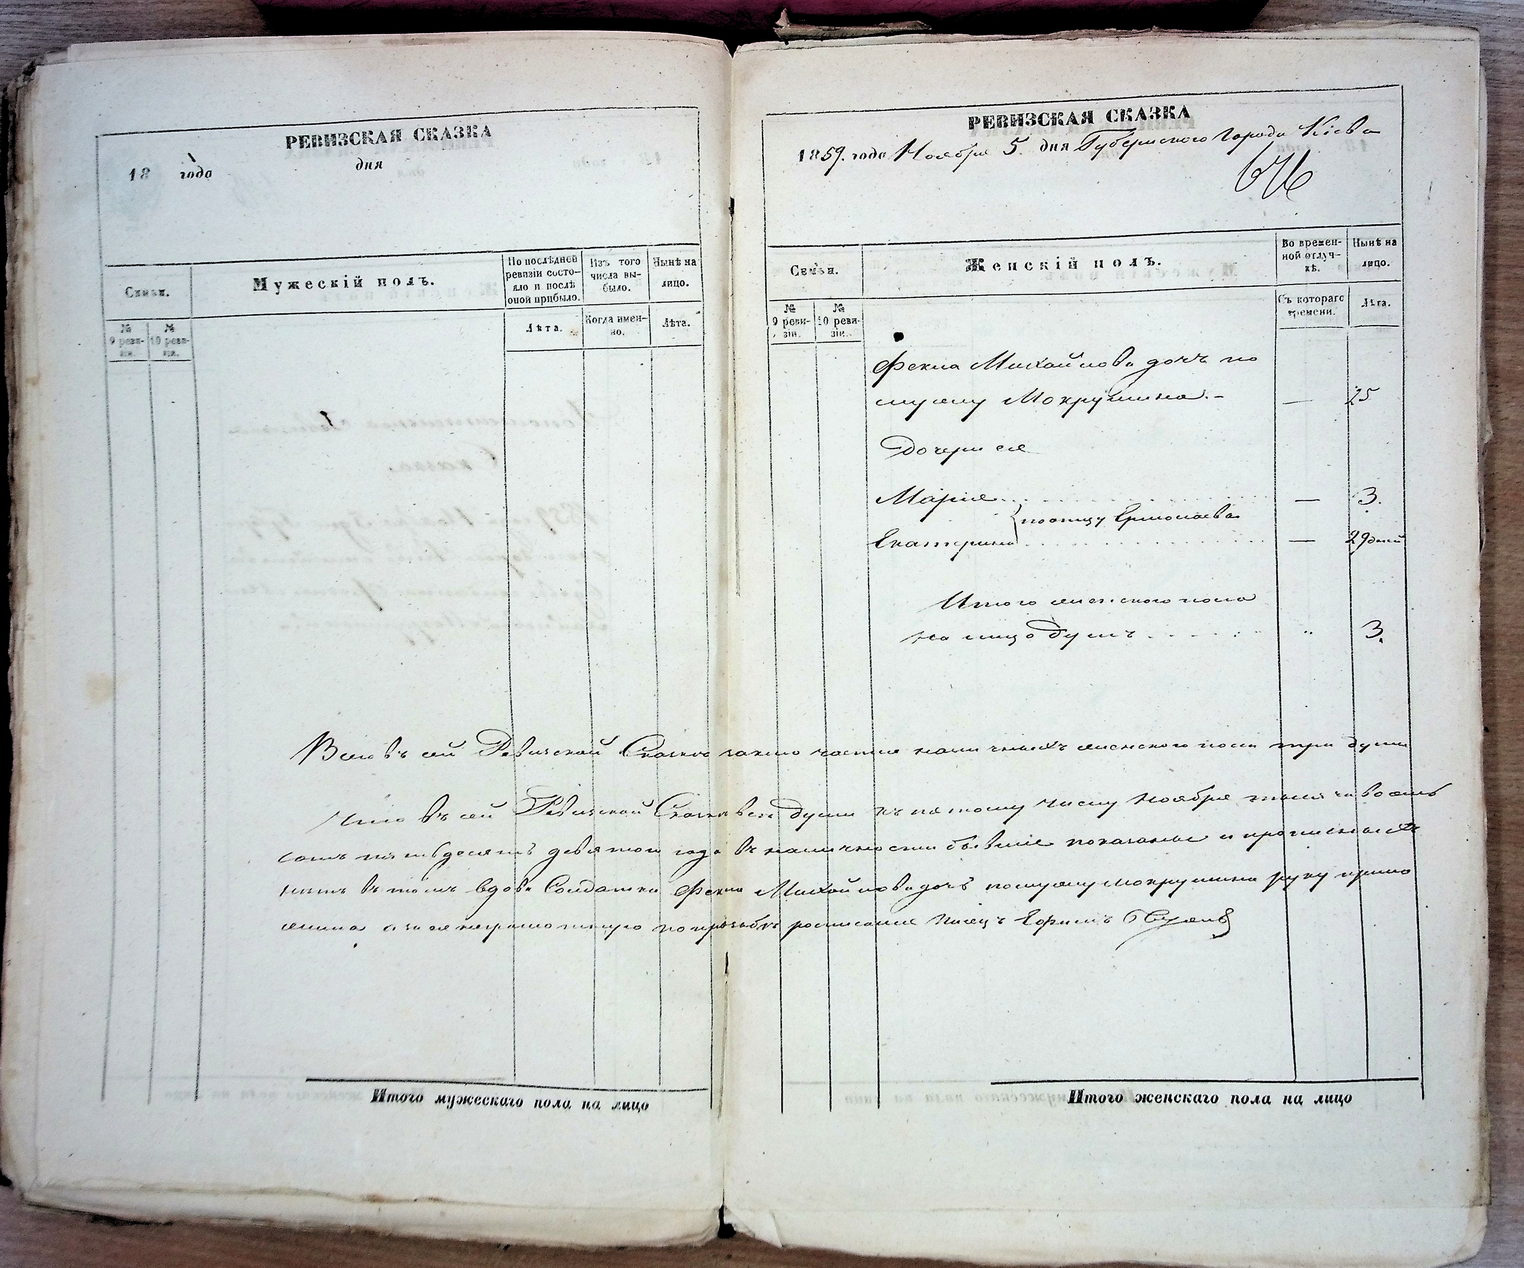 РЕВИЗСКАЯ СКАЗКА
18 года дня
Семьи.
Мужескій полъ.
По послѣдней ревизіи состояло и послѣ оной прибыло.
Изъ того числа выбыло.
Нынѣ на лицо.
№ 9 ревизіи.
№ 10 ревизіи.
Лѣта.
Когда именно.
Лѣта.
Итого мужескаго пола на лицо
РЕВИЗСКАЯ СКАЗКА
1859. года Ноября 5. дня Губернского Города Кіева
Семьи.
Женскій полъ.
Во временной отлучкѣ.
Нынѣ на лицо.
№ 9 ревизіи.
№ 10 ревизіи.
Съ котораго времени.
Лѣта.
Фекла Михайлова дочь по
мужу Мокрушина. — 25
Дочери ее
Марія — 3.
по отцу Ермолаева
Екатерина — 29 дней
Итого женского пола
на лицо душъ " 3.
Всего въ сей Ревизской Сказкѣ наличныхъ женского пола три души
Что въ сей Ревизской Сказкѣ все души къ пятому числу Ноября тысяча восемь
сотъ пятьдесятъ девятого года въ наличности бывшіе показаны и прописныхъ
нѣтъ въ томъ вдова Солдатка Фекла Михайлова дочь по мужу Мокрушина руку прило
жила а за ее неграмотную по просьбѣ росписался Писецъ Ефимъ
Итого женскаго пола на лицо